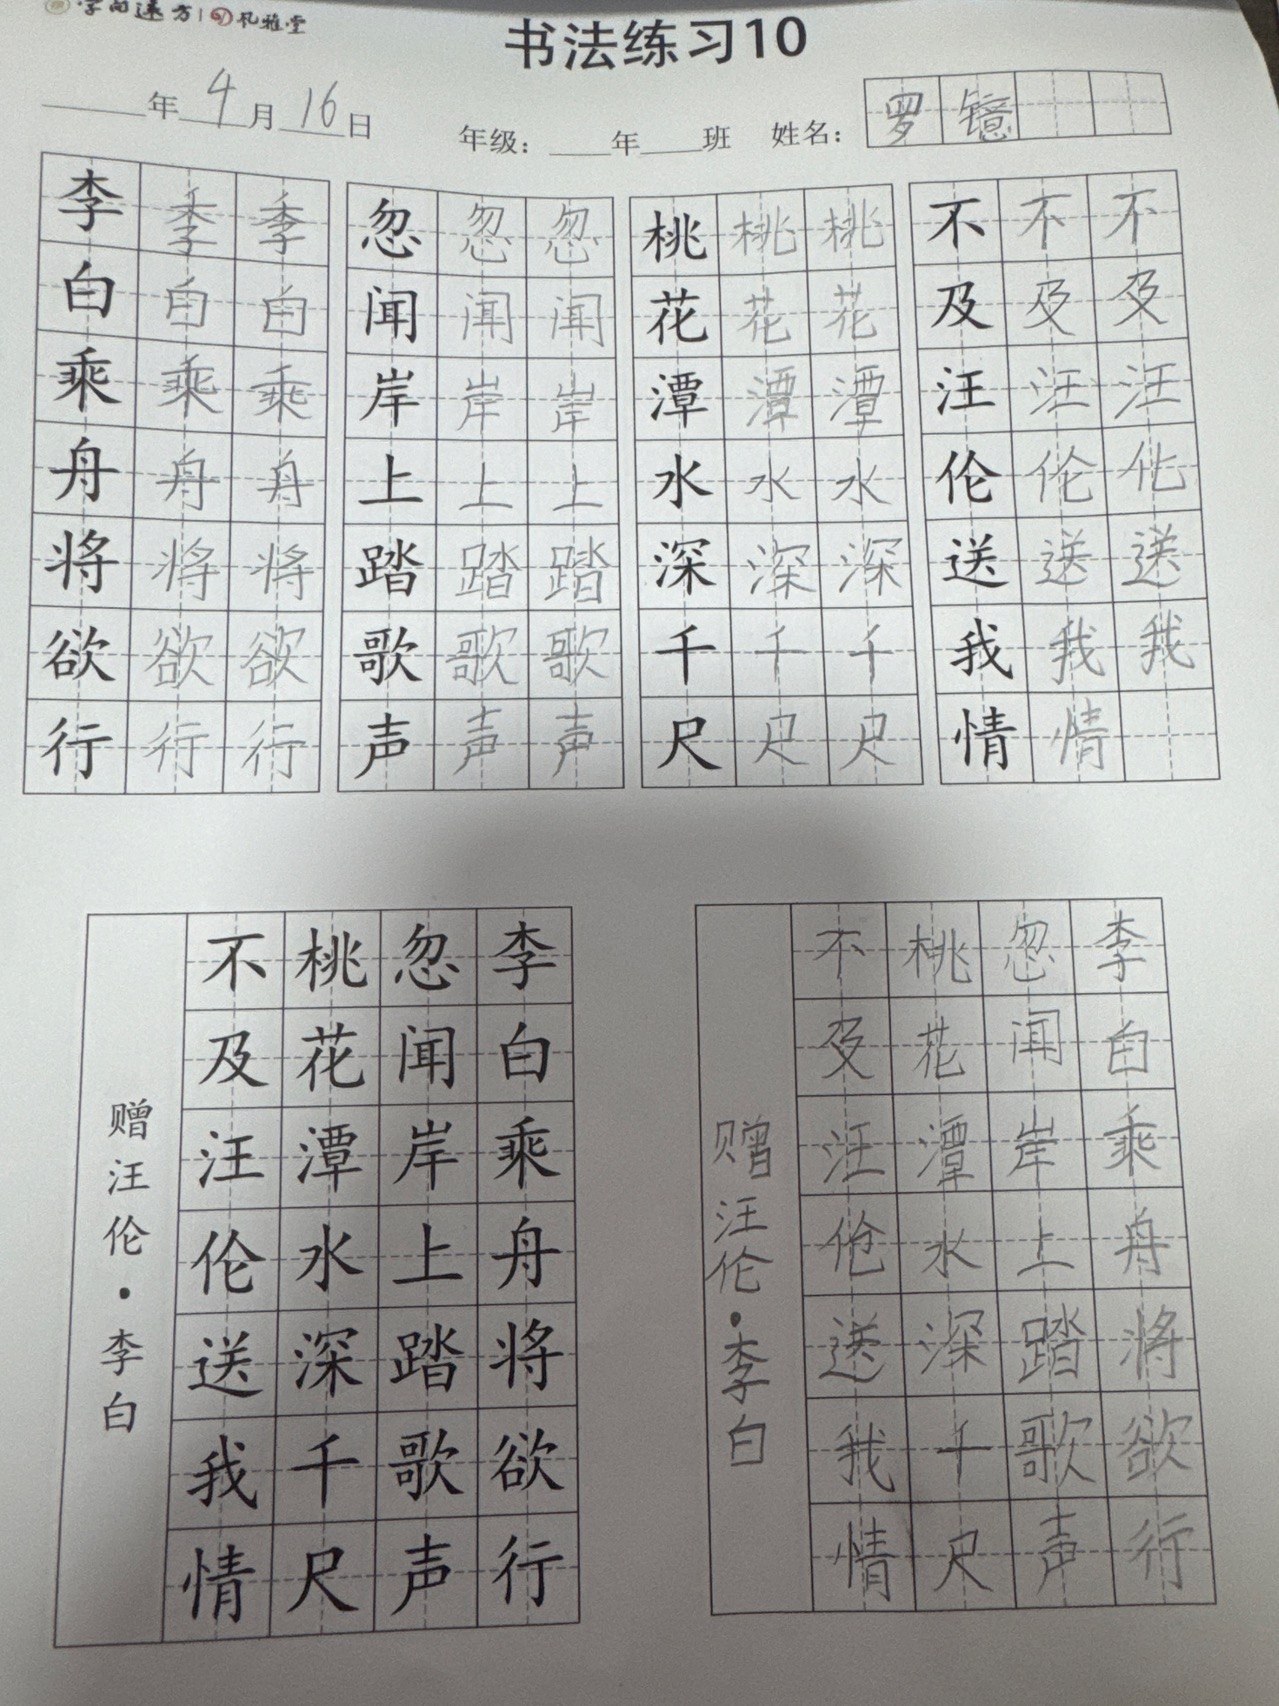 学而速方 孔雅堂
书法练习10
年 4 月 16 日 年级： 年 班 姓名： 罗 镱
李 李 李 忽 忽 忽 桃 桃 桃 不 不 不
白 白 白 闻 闻 闻 花 花 花 及 及 及
乘 乘 乘 岸 岸 岸 潭 潭 潭 汪 汪 汪
舟 舟 舟 上 上 上 水 水 水 伦 伦 伦
将 将 将 踏 踏 踏 深 深 深 送 送 送
欲 欲 欲 歌 歌 歌 千 千 千 我 我 我
行 行 行 声 声 声 尺 尺 尺 情 情
李白乘舟将欲行
忽闻岸上踏歌声
桃花潭水深千尺
不及汪伦送我情
赠汪伦·李白
李白乘舟将欲行
忽闻岸上踏歌声
桃花潭水深千尺
不及汪伦送我情
赠汪伦·李白